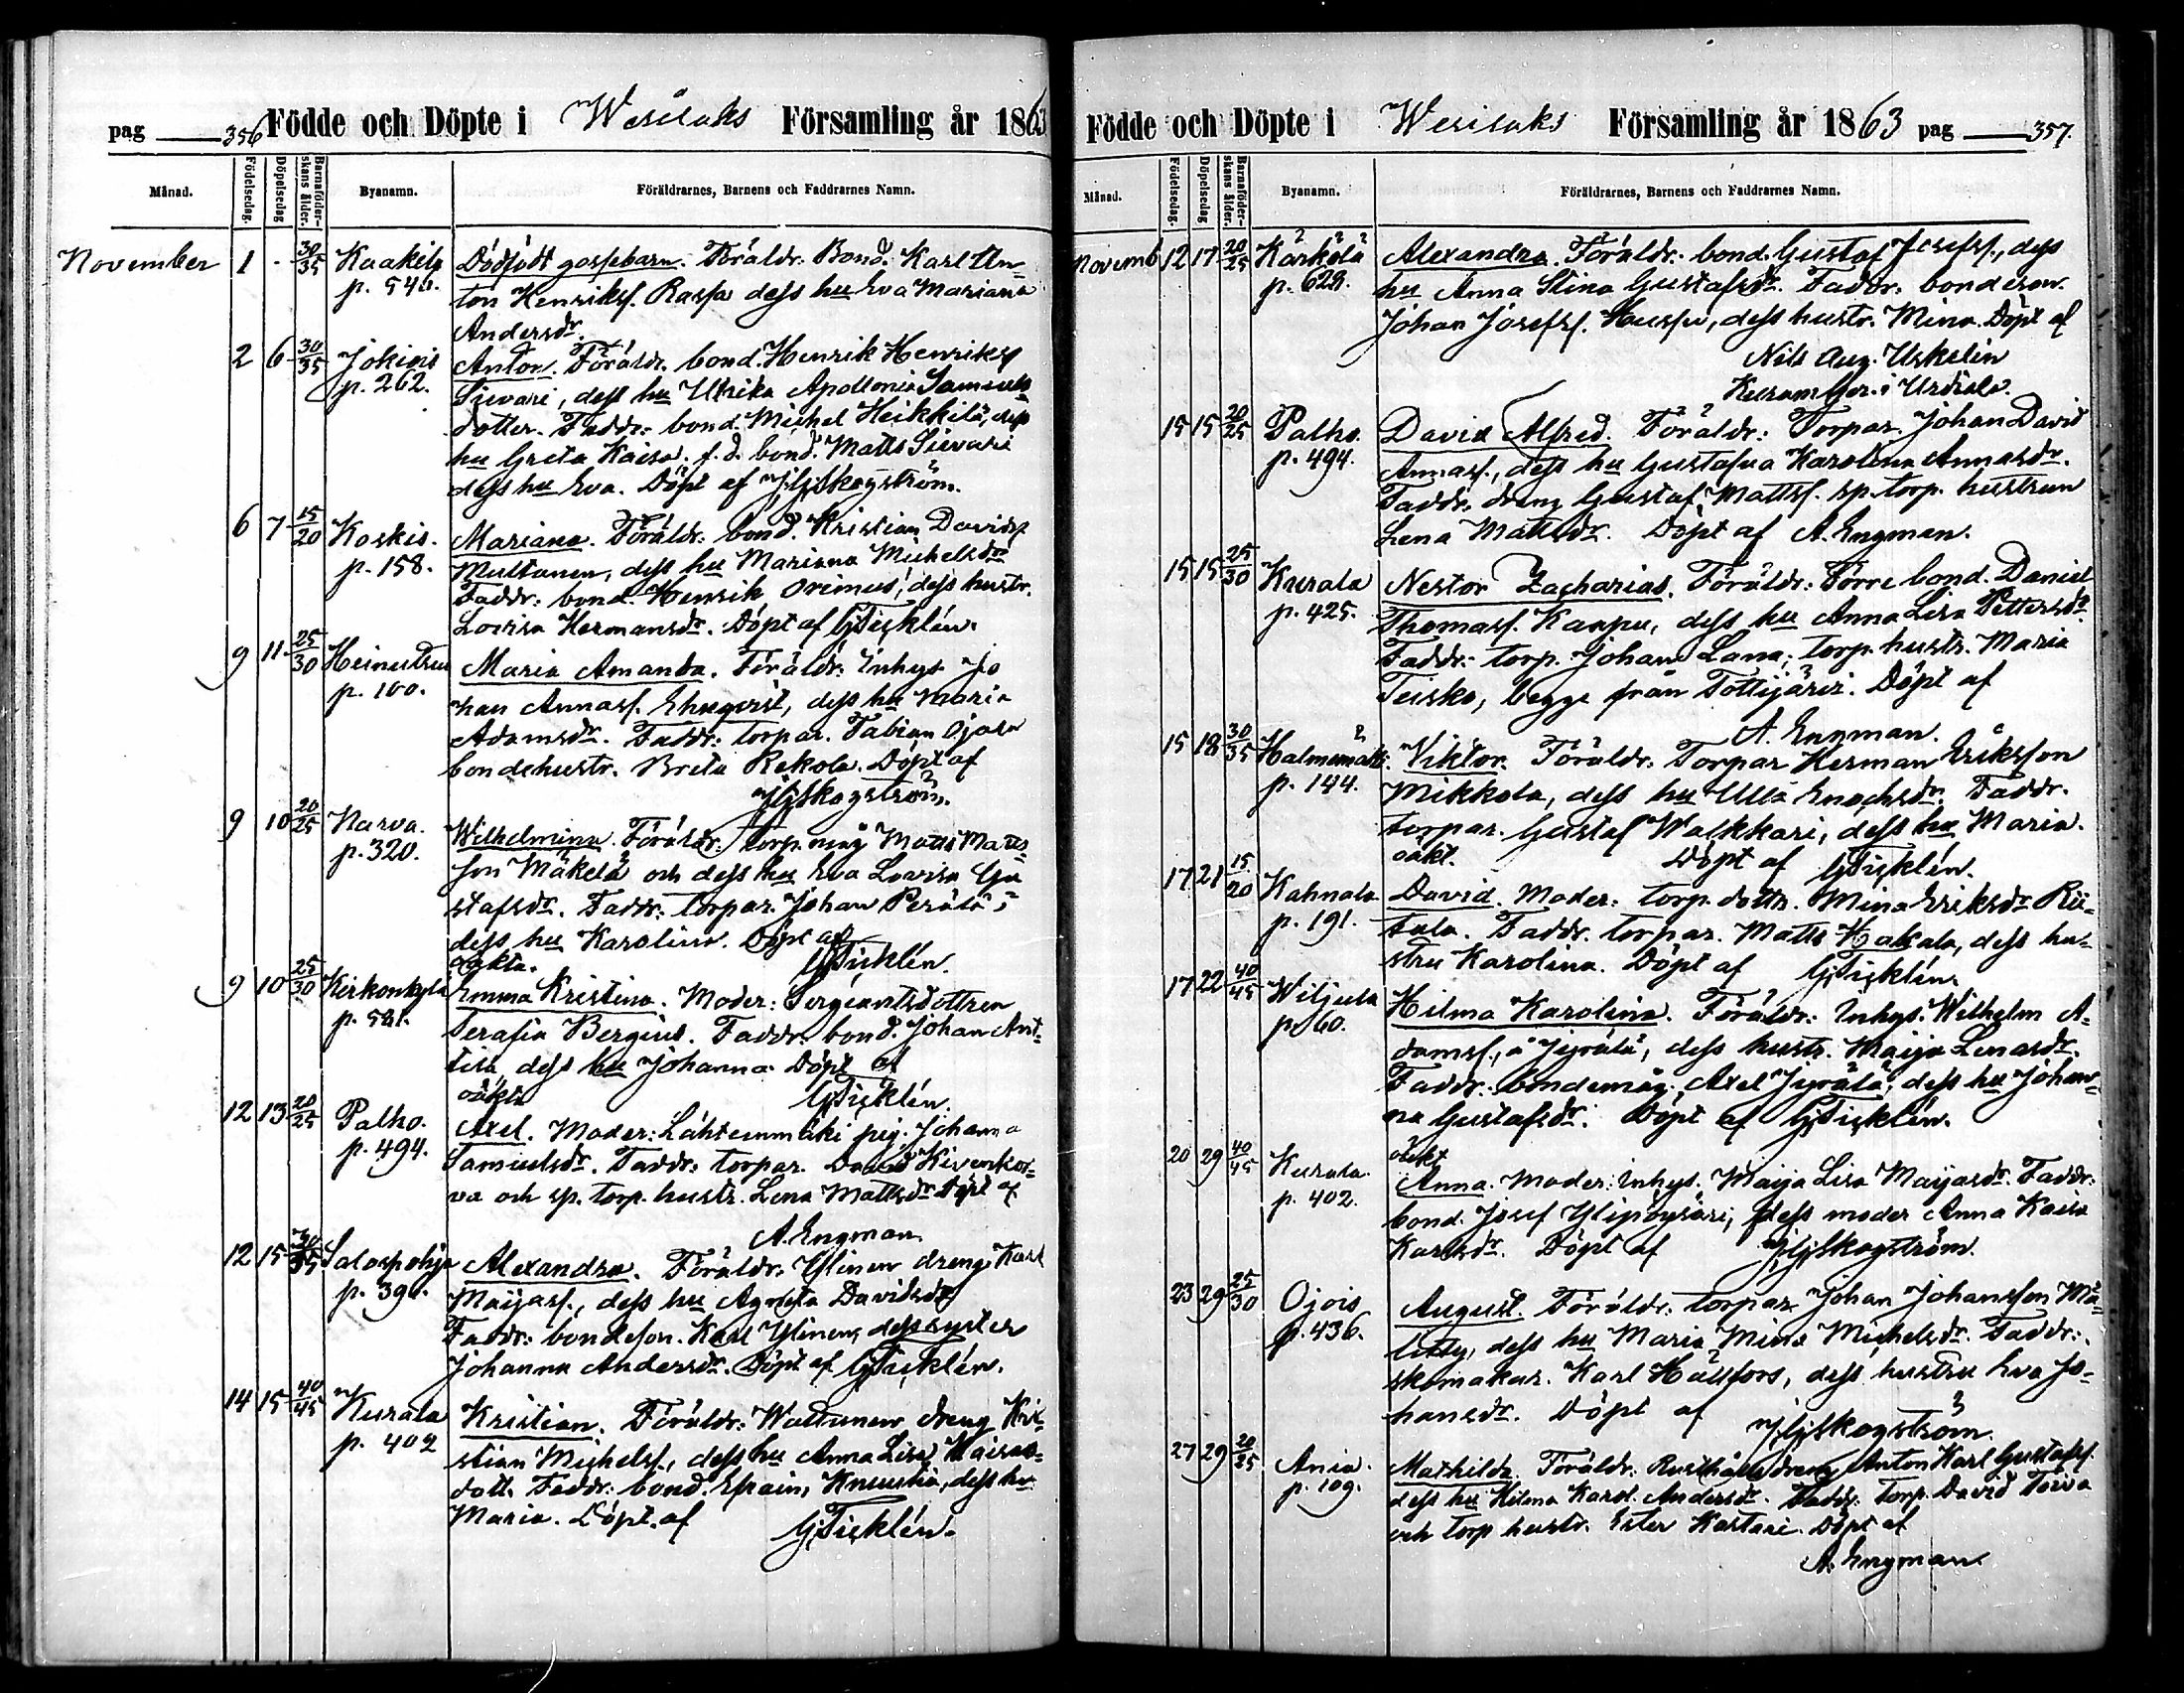 pag 356 Födde och Döpte i Wesilaks Församling år 1863
Månad. Födelsedag. Döpelsedag Barnaföderskans ålder. Byanamn. Föräldrarnes, Barnens och Faddrarnes Namn.
November 1 - 30/35 Kaakila Dödfödt gossebarn. Föräldr. Bond. Karl An-
p. 540. ton Henriksf. Rassa dess hu Eva Mariana
Andersdr.
2 6 30/35 Jokiois Anton. Föräldr. bond. Henrik Henriksf
p. 262. Sievari, dess hu Ulrika Apollonia Samuels-
dotter. Faddr. bond. Michel Heikkilä, dess
hu Greta Kaisa. f. d. bond. Matts Sievari
dess hu Eva. Döpt af Skogström.
6 7 15/20 Koskis. Mariana. Föräldr: bond. Kristian Davidsf
p. 158. Multanen, dess hu Mariana Michelsdr
Faddr: bond. Henrik Orimus, dess hustr.
Lovisa Hermansdr. Döpt af G Ticklén.
9 11 25/30 Maria Amanda. Föräldr: Inhys Jo
p. 100. han Annasf. Ehnqvist, dess hu Maria
Adamsdr. Faddr: torpar. Fabian Ojasa
bondehustr. Brita Rekola. Döpt af
Skogström.
9 10 20/25 Narva. Wilhelmina. Föräldr: torp. måg Matts Matts-
p. 320. son Mäkelä och dess hu Eva Lovisa Gu
stafsdr. Faddr: torpar. Johan Perälä,
dess hu Karolina. Döpt af
oäkta. G Ticklén.
9 10 25/30 Kirkonkylä Emma Kristina. Moder: Sergeantsdottren
p. 581. Serafia Bergius. Faddr: bond. Johan Ant-
tila dess hu Johanna Döpt af
oäkta G Ticklén.
12 13 20/25 Palho. Axel. Moder: Lähteenmäki pig. Johanna
p. 494. Samuelsdr. Faddr: torpar. David Kivenkor-
va och sp. torp. hustr. Lena Mattsdr Döpt af
A. Engman.
12 15 30/35 Salospohja Alexandra. Föräldr. Ylinen dreng Karl
p. 390. Maijasf., dess hu Agneta Davidsdr
Faddr: bondeson. Karl Ylinen, dess syster
Johanna Andersdr. Döpt af G Ticklén.
14 15 40/45 Kurala Kristian. Föräldr: Wattunen dreng Kri-
p. 402 stian Michelsf., dess hu Anna Lisa Kaisas-
dott. Faddr: bond. Efraim, Knuutila, dess hu
Maria. Döpt af G Ticklén.
Födde och Döpte i Wesilaks Församling år 1863 pag 357.
Månad. Födelsedag. Döpelsedag Barnaföderskans ålder. Byanamn. Föräldrarnes, Barnens och Faddrarnes Namn.
Novemb 12 17 20/25 Kärkölä Alexandra. Föräldr. bond. Gustaf Josefsf., dess
p. 628. hu Anna Stina Gustafsdr. Faddr. bondeson.
Johan Josefsf. Hussu, dess hustr. Mina. Döpt af
Nils Aug. Uskelin
i Urdiala.
15 15 20/25 Palho. David Alfred. Föräldr: Torpar. Johan David
p. 494. Annasf., dess hu Gustafva Karolina Annasdr.
Faddr. dreng Gustaf Mattsf. sp. torp. hustrun
Lena Mattsdr. Döpt af A. Engman.
15 15 25/30 Kurala Nestor Zacharias. Föräldr: Förre bond. Daniel
p. 425. Thomasf. Karpu, dess hu Anna Lisa Pettersdr
Faddr: torp. Johan Lana; torp. hustr. Maria
Teisko, begge från Tottijärvi. Döpt af
A. Engman.
15 18 30/35 Halmemäki. Viktor. Föräldr: Torpar Herman Eriksson
p. 144. Mikkola, dess hu Ulla Enochsdr. Faddr.
torpar. Gustaf Walkkari, dess hu Maria.
oäkt. Döpt af G Ticklén.
17 21 15/20 Kahnala David. Moder: torp. dottr. Mina Eriksdr Rii-
p. 191. tala. Faddr. torpar. Matts Hakala, dess hu-
stru Karolina. Döpt af G Ticklén.
17 22 40/45 Wiljula Hilma Karolina. Föräldr: Inhys. Wilhelm A-
p. 60. damsf., å Jyrälä, dess hustr. Maija Lenasdr.
Faddr: bondemåg. Axel Jyrälä, dess hu Johan-
na Gustafsdr. Döpt af G Ticklén.
oäkt
20 29 40/45 Kurala. Anna. Moder: Inhys. Maija Lisa Maijasdr. Faddr.
p. 402. bond. Josef Ylipöysäri, dess moder Anna Kaisa
Karlsdr. Döpt af Skogström.
23 29 25/30 Ojois August. Föräldr. torpar Johan Johansson Mä-
p. 436. dess hu Maria Mina Michelsdr. Faddr:
skomakar. Karl Hällfors, dess hustru Eva Jo-
hansdr. Döpt af Skogström.
27 29 20/25 Ania. Mathilda. Föräldr. Rusthållsdreng Anton Karl Gustafsf.
p. 109. dess hu Hilma Karol. Andersdr. Faddr: torp. David Toiva
och torp. hustr. Ester Kartari. Döpt af
A. Engman.